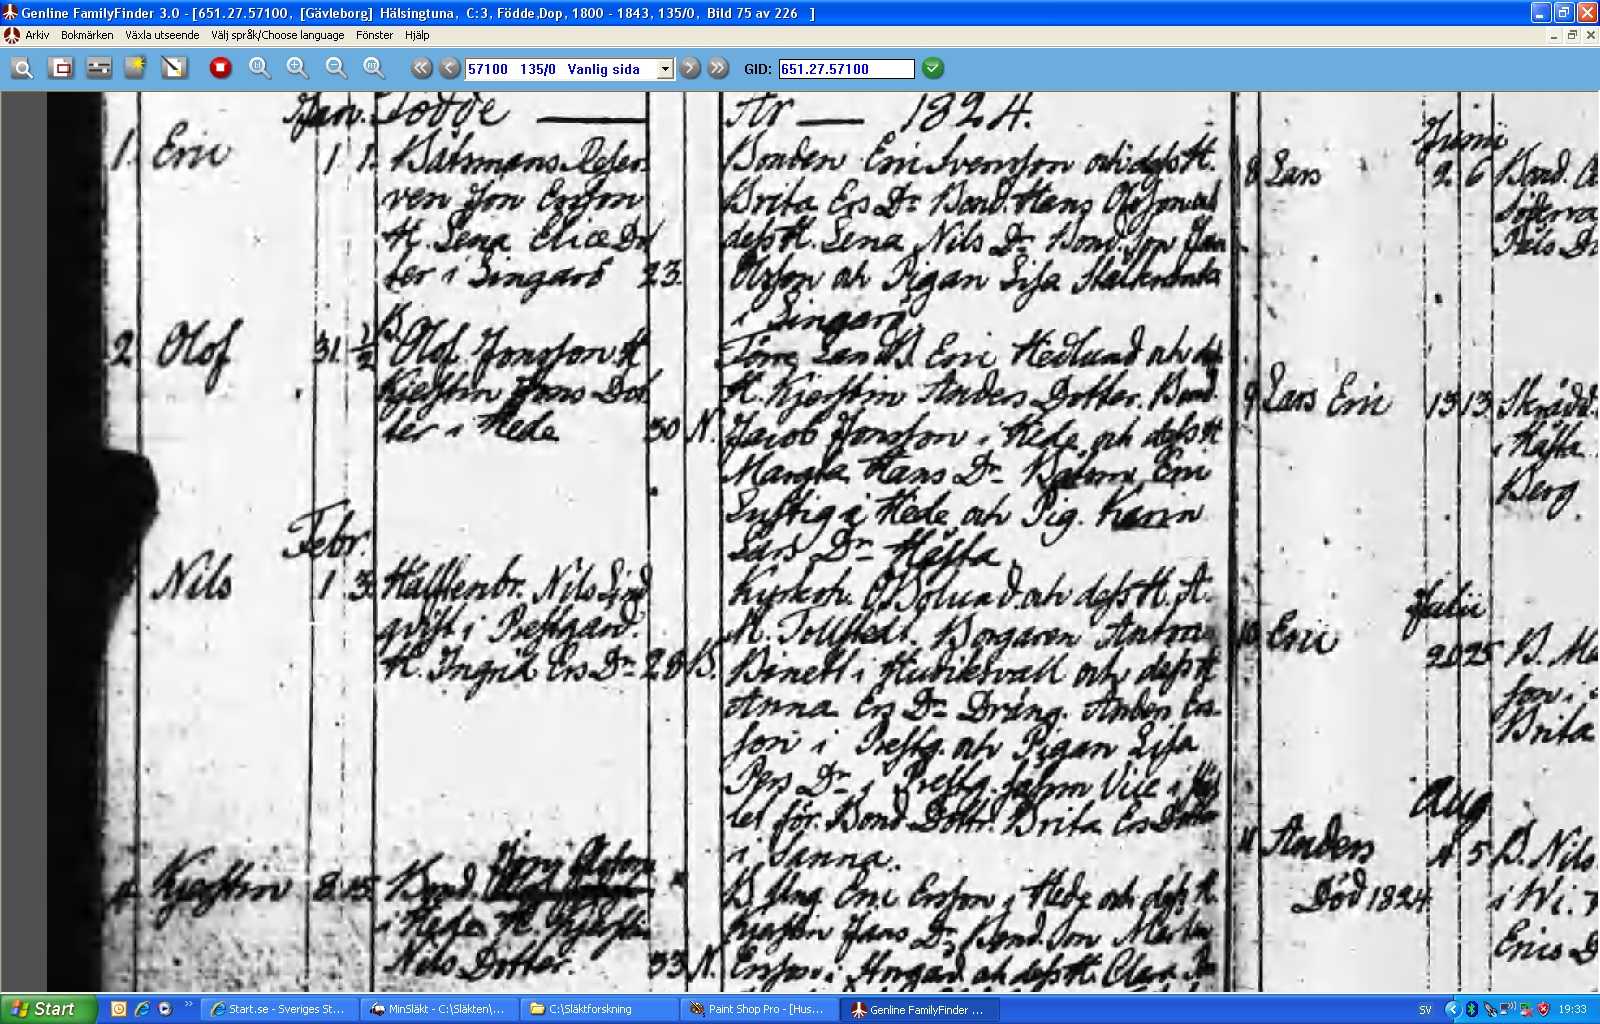 Genline FamilyFinder 3.0 - [651.27.57100, [Gävleborg] Hälsingtuna, C:3, Födde,Dop, 1800 - 1843, 135/0, Bild 75 av 226 ]
Arkiv Bokmärken Växla utseende Välj språk/Choose language Fönster Hjälp
57100 135/0 Vanlig sida GID: 651.27.57100
Jan. Födde
1. Eric 1 1. Båtsmans Reser
ven Jon Ersson
H. Lena Elice Dot
ter i Lingarö 23.
2 Olof 31 1/2 B. Olof Jonsson H
Kjerstin Jons Dot
ter i Hede 30 N.
Febr.
Nils 1 3. Hälftenbr. Nils Lind
qvist i Prestgård.
H. Ingrid Ers Dr 28 B.
4 Kjerstin 8 15 Bond. Jon Olofson
i Hede H. Kjerstin
Nils Dotter. 33 N.
År 1824.
Bonden Eric Svensson och dess H.
Brita Ers Dr Bond. Hans Olofson och
dess H. Lena Nils Dr Bond. Son Jan
Olsson och Pigan Lisa
i Lingarö
Lars Eric Hedlund och dess
H. Kjerstin Anders Dotter. Bond.
Jacob Jonsson i Hede och dess H
Margta Hans Dr Båtsm. Eric
Lustig i Hede och Pig. Karin
Lars Dr Hästa
Kyrkoh. O Bolund. och dess H. A.
M. Tollstedt. Borgaren Anton
Binett i Hudiksvall och dess H
Anna Ers Dr Dräng. Anders Ers-
son i Prestg. och Pigan Lisa
Pers Dr i Prestg. samm
let för. Bond. Dottr. Brita Ers Dotter
i Sanna.
B. Ung. Eric Ersson i Hede och dess H.
Kjerstin Jans Dr Bond. Son Mårten
Ersson i Horgård och dess H.
Junii
8 Lars 2 6 Bond.
9 Lars Eric 13 13 Skrädd.
i Hästa
Berg
Julii
10 Eric 20 25 B. Ma
son i
Brita
Aug
11 Anders 4 5 B. Nils
Död 1824 i Wi.
Erics D
Start Start.se - Sveriges St... MinSläkt - C:\Släkten\... C:\Släktforskning Paint Shop Pro - [Hus... Genline FamilyFinder ... SV 19:33